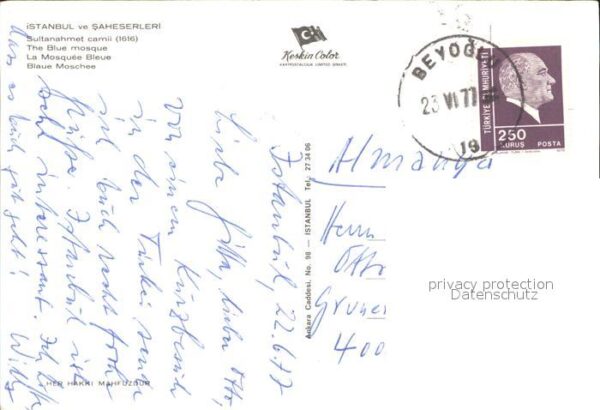 İSTANBUL ve ŞAHESERLERİ
Sultanahmet camii (1616)
The Blue mosque
La Mosquée Bleue
Blaue Moschee
Keskin Color
KARTPOSTALCILIK LİMİTED ŞİRKETİ
BEYOĞLU
23 VI 77
19
TÜRKİYE CUMHURİYETİ
250
KURUŞ POSTA
Ankara Caddesi. No. 98 — İSTANBUL Tel.: 27 34 06
HER HAKKI MAHFUZDUR
Istanbul, 22.6.77
Liebe Jutta, lieber Otto,
Von einem Kurzbesuch
in der Türkei senden
ich Euch recht frohe
Grüße. Istanbul ist
sehr interessant. Ich hoffe,
dass es Euch gut geht!
Willy
Almanya
Herrn
Otto
400
privacy protection
Datenschutz